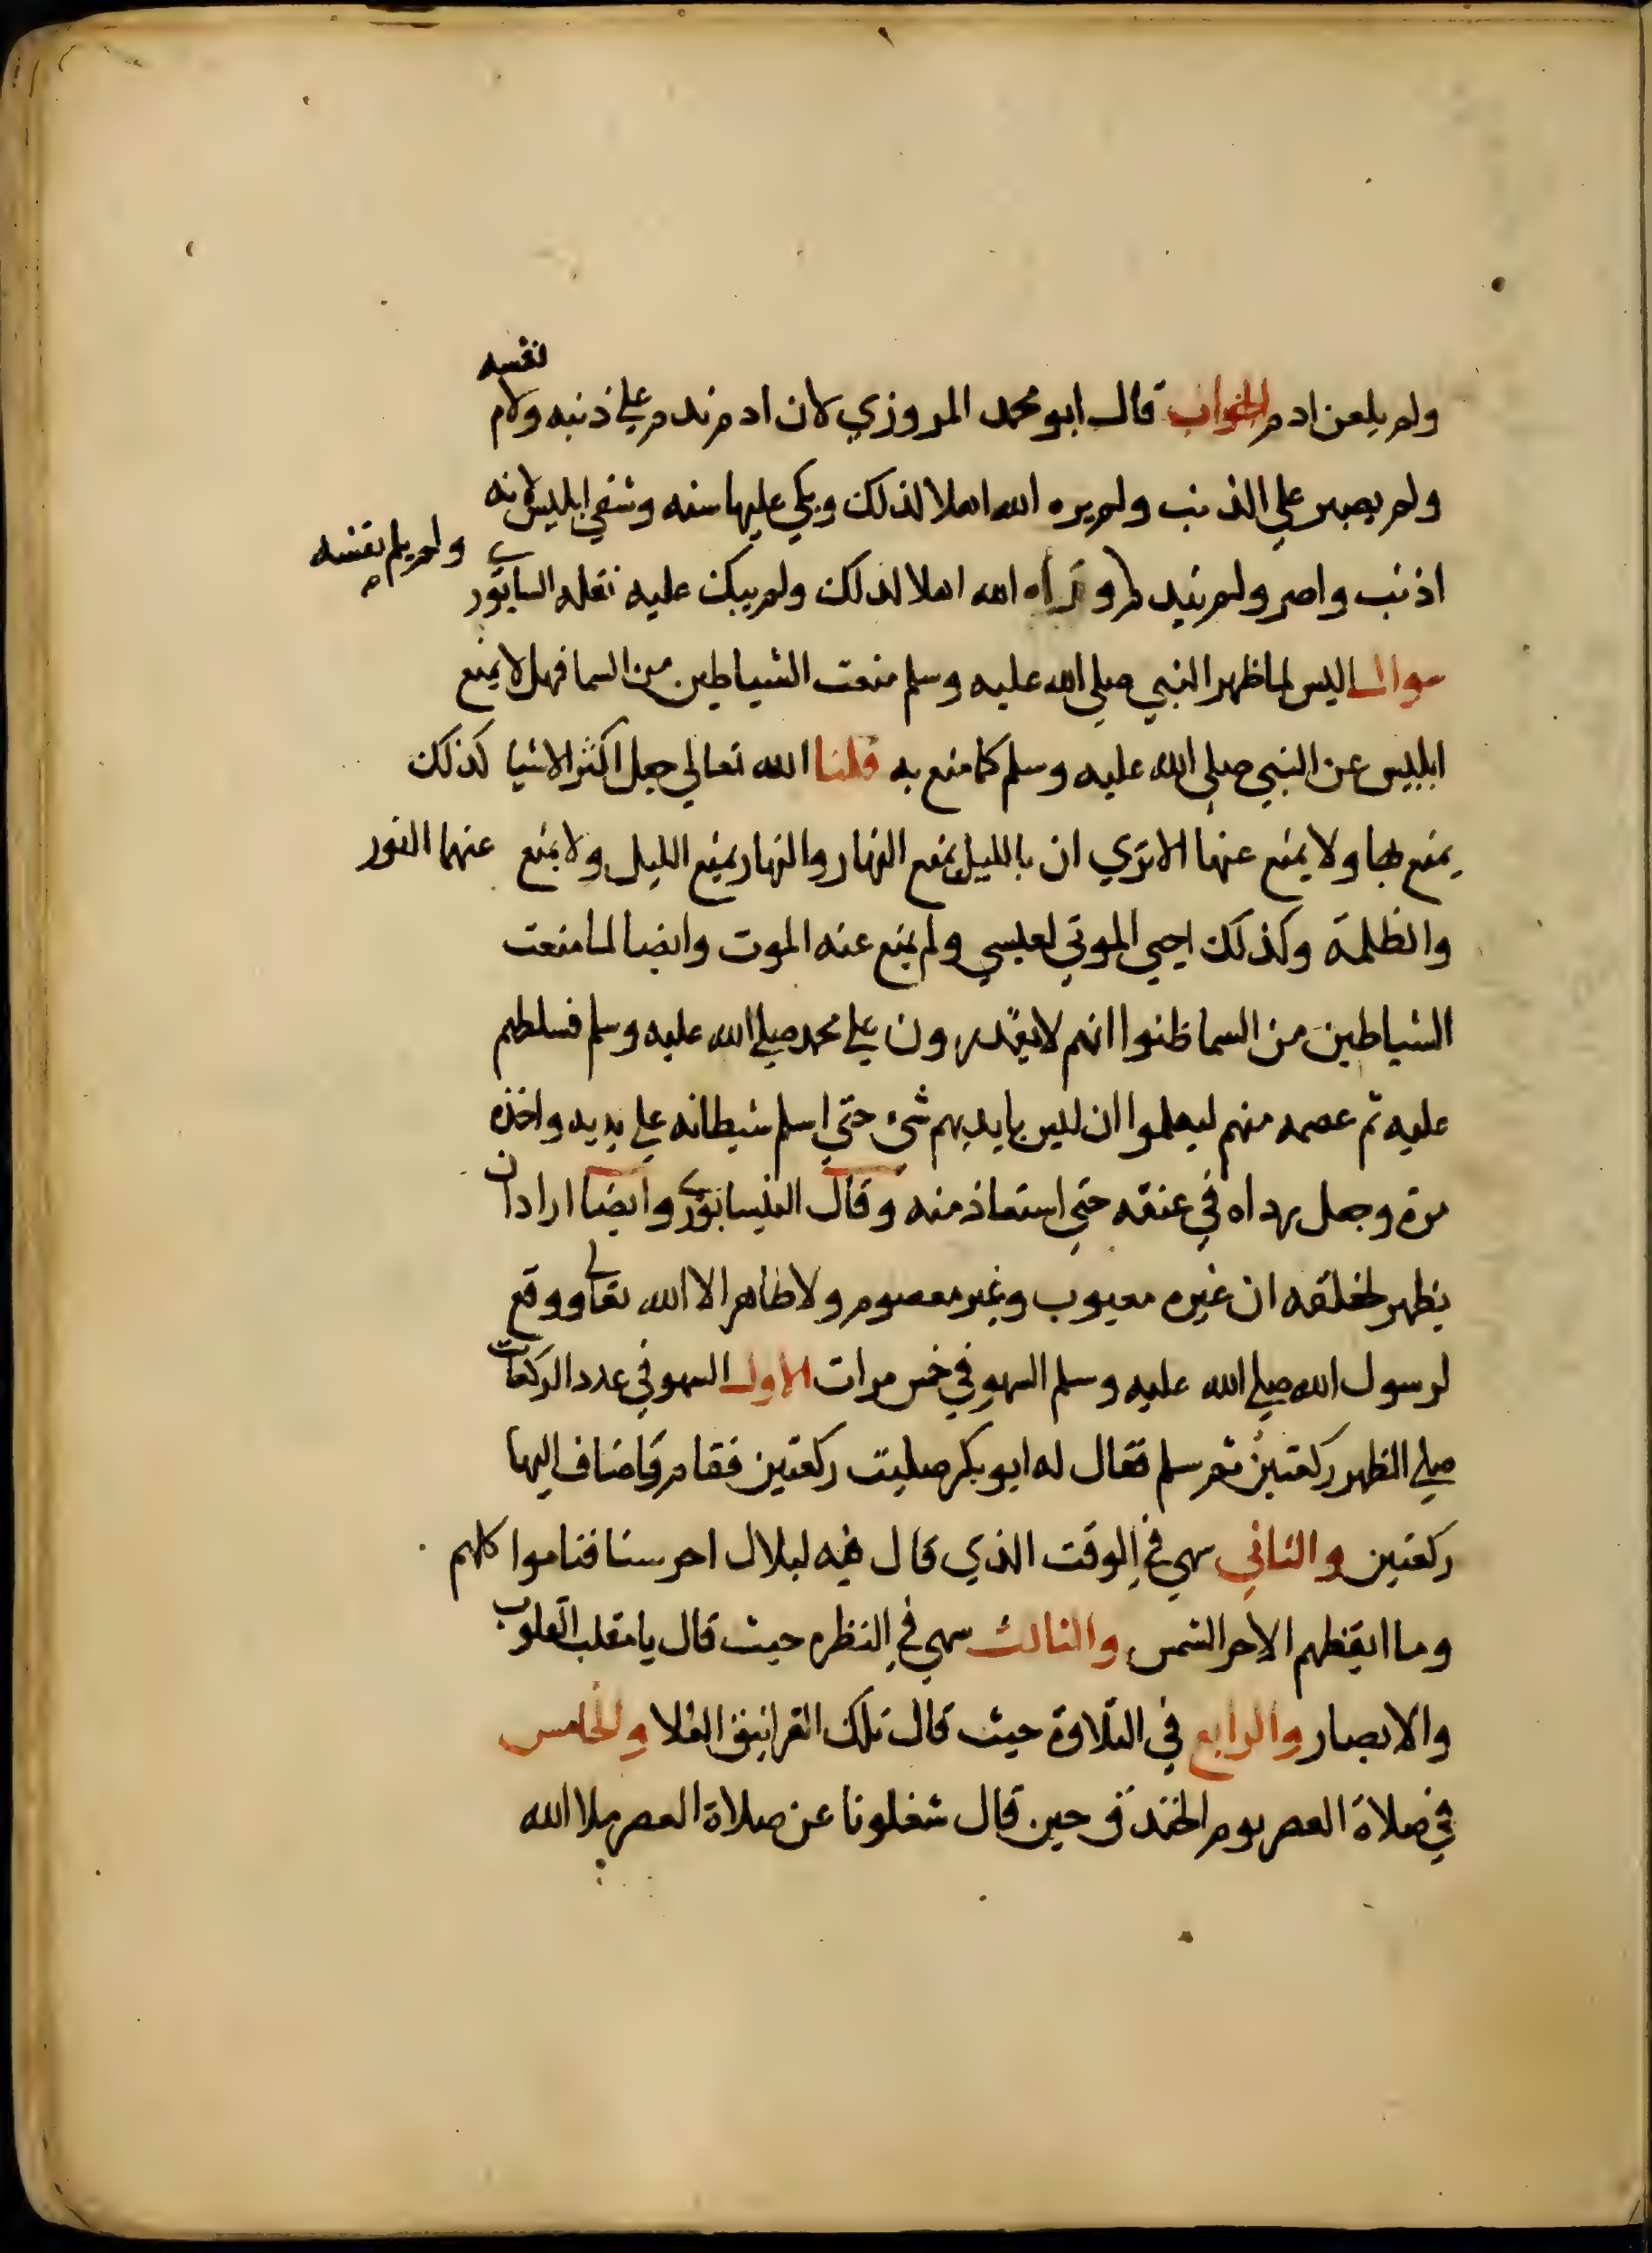 ولم يلعن ادم الجواب قال ابو محمد المروزي لان ادم ندم علي ذنبه ولام نفسه
ولم يصر علي الذنب ولم يره الله اهلا لذلك وبكي عليها سنه وشقي ابليس لانه
اذنب واصر ولم يندم وراه الله اهلا لذلك ولم يبك عليه نقله السابوري
ولم يلم نفسه
سوال اليس لما ظهر النبي صلي الله عليه وسلم منعت الشياطين من السما فهل لا يمنع
ابليس عن النبي صلي الله عليه وسلم كما منع به قلنا الله تعالي جعل اكثر الاشيا كذلك
يمنع بها ولا يمنع عنها الا تري ان بالليل يمنع النهار والنهار يمنع الليل ولا يمنع عنهما النور
والظلمة وكذلك احيي الموتي لعيسي ولم يمنع عنه الموت وايضا لما منعت
الشياطين من السما ظنوا انهم لا يقدرون علي محمد صلي الله عليه وسلم فسلطهم
عليه ثم عصمه منهم ليعلموا ان ليس بايديهم شئ حتي اسلم شيطانه علي يديه واخذه
مرة وجعل رداه في عنقه حتي استعاذ منه وقال النيسابوري وايضا اراد ان
يظهر لخلقه ان غيره معيوب وغير معصوم ولا طاهر الا الله تعالي ووقع
لرسول الله صلي الله عليه وسلم السهو في خمس مرات الاول السهو في عدد الركعات
صلي الظهر ركعتين ثم سلم فقال له ابو بكر صليت ركعتين فقام فاضاف اليها
ركعتين والثاني سهي في الوقت الذي قال فيه لبلال احرسنا فناموا كلهم
وما ايقظهم الا حر الشمس والثالث سهي في النظره حيث قال يا مقلب القلوب
والابصار والرابع في التلاوة حيث قال تلك الغرانيق العلا والخامس
في صلاة العصر يوم الخندق حين قال شغلونا عن صلاة العصر ملا الله